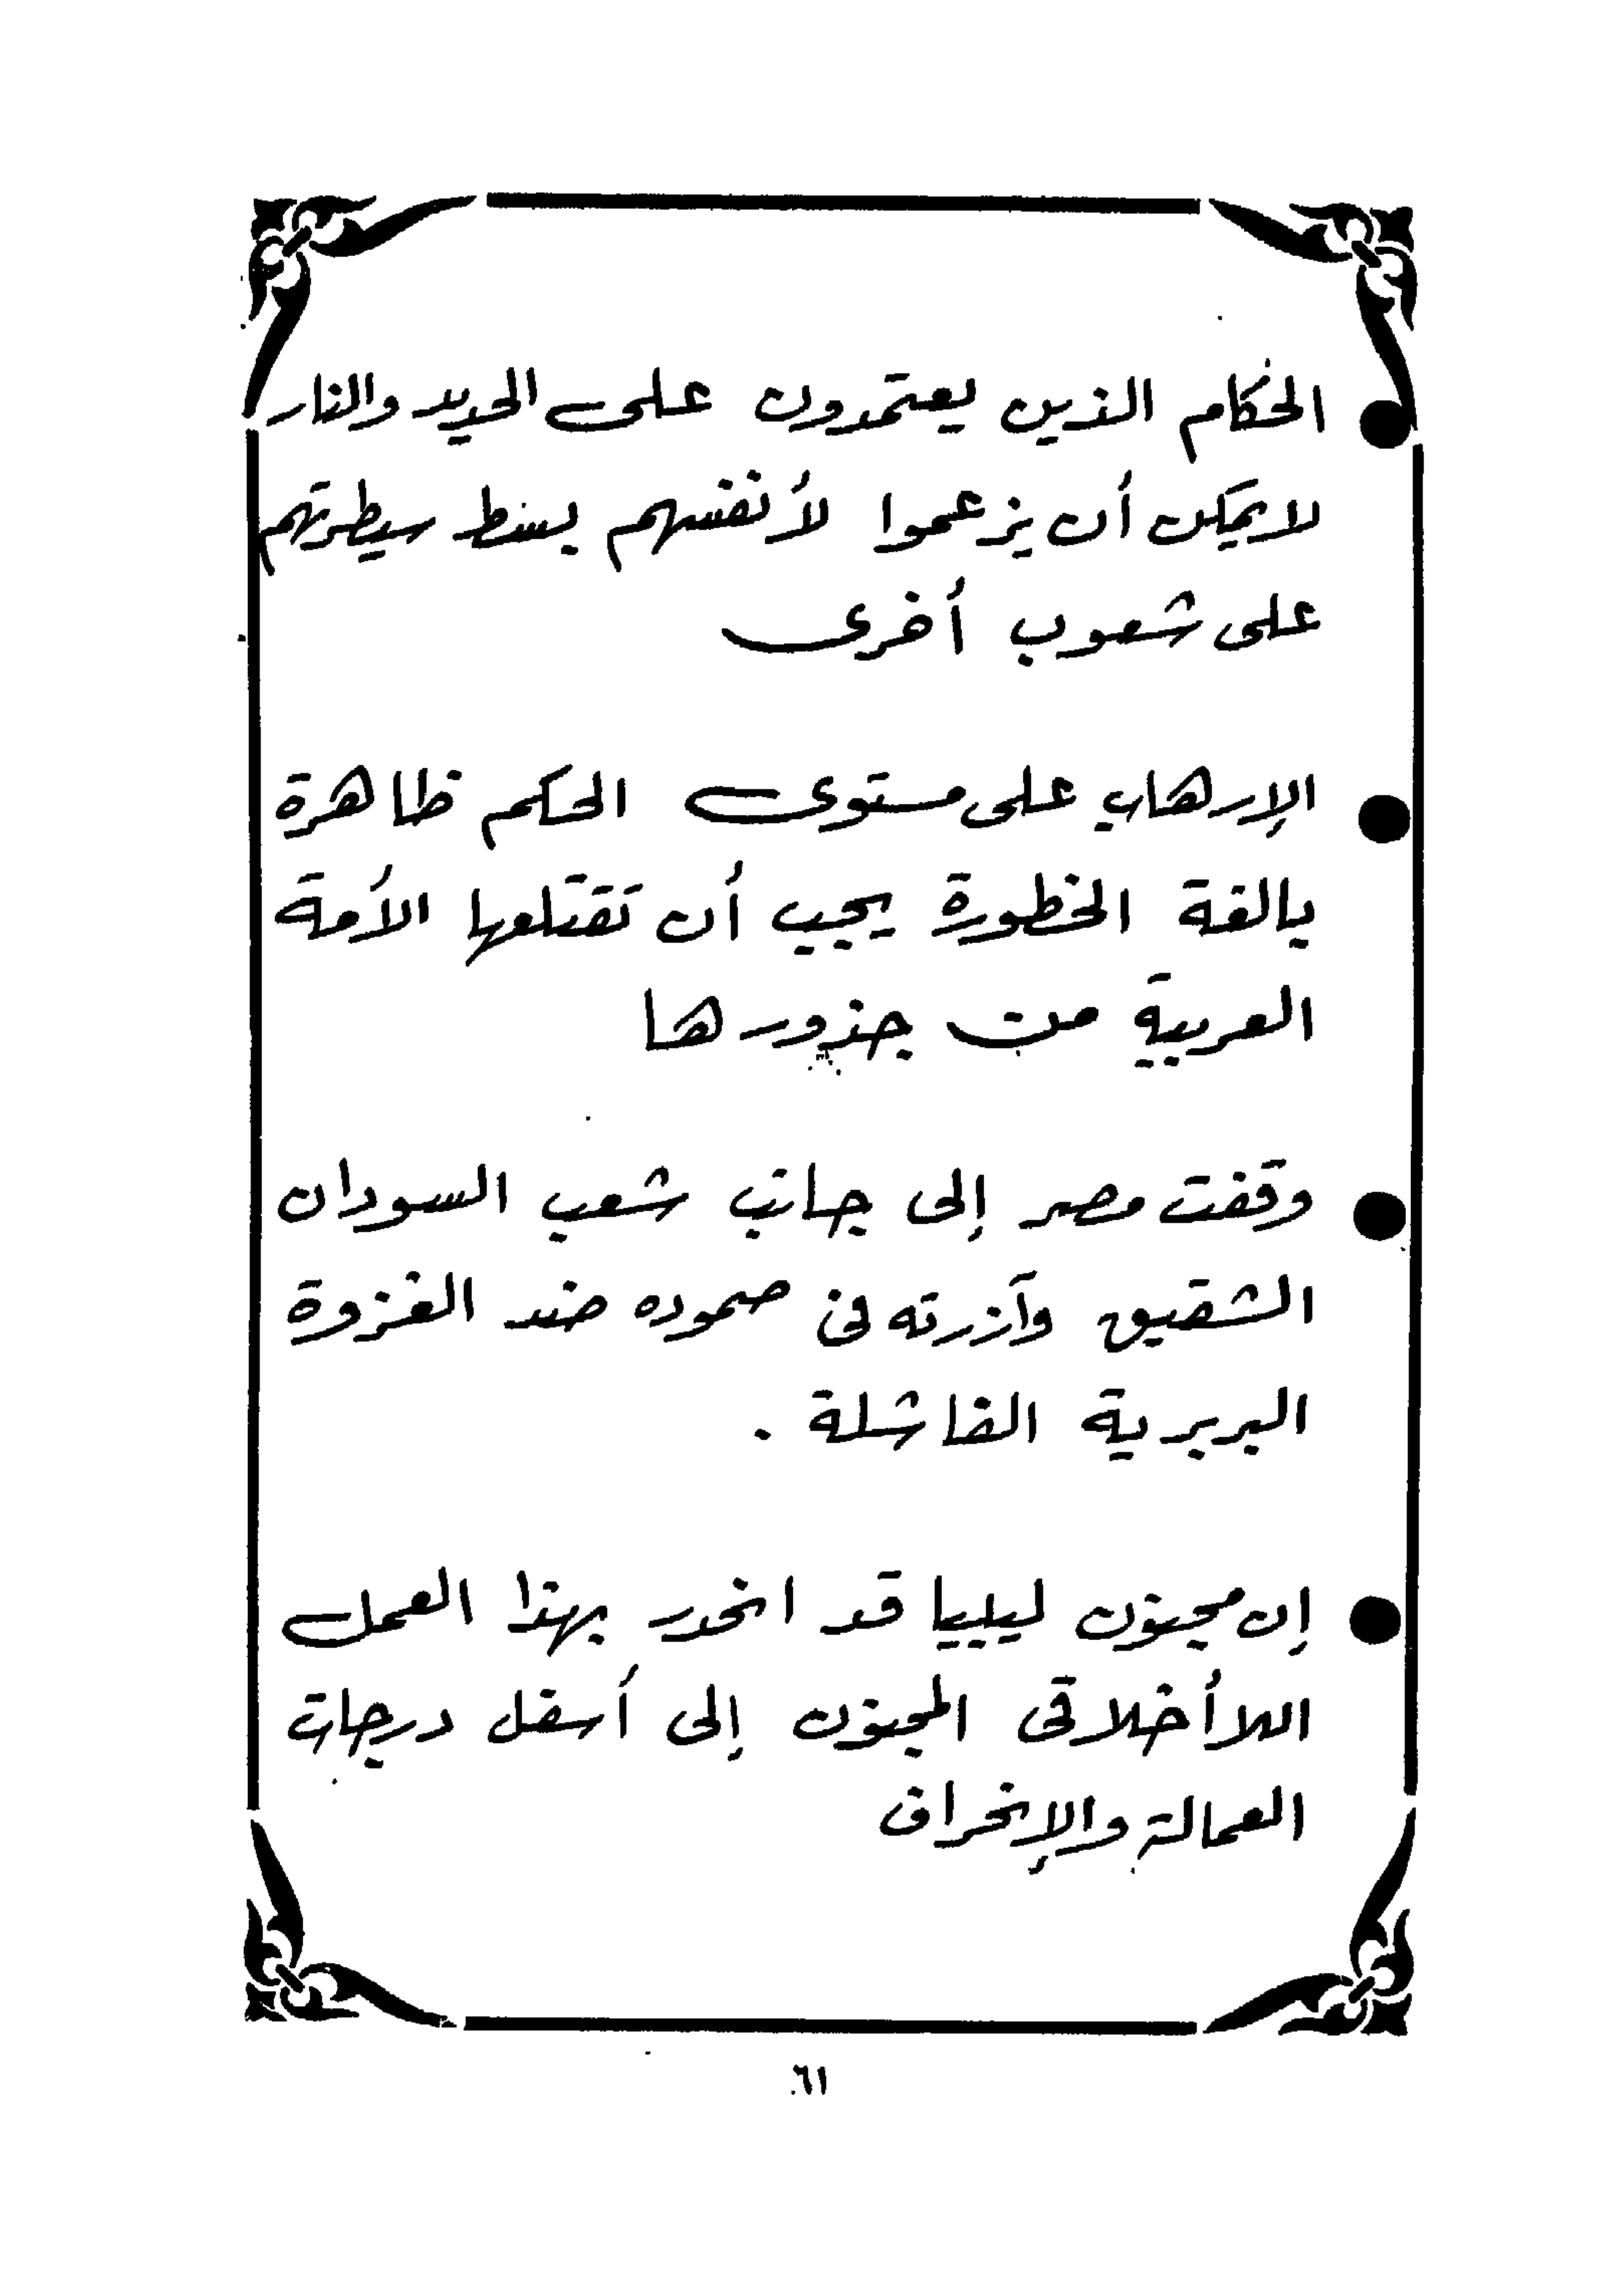 ● الحكام الذين يعتمدون على الحديد والنار
لا يمكن أن يزعموا لأنفسهم بسط سيطرتهم
على شعوب أخرى
● الإرهاب على مستوى الحكم ظاهرة
بالغة الخطورة يجب أن تقتلعها الأمة
العربية من جذورها
● وقفت مصر إلى جانب شعب السودان
الشقيق وآزرته فى صموده ضد الغزوة
البربرية الفاشلة .
● إن مجنون ليبيا قد انحدر بهذا العمل
اللاأخلاقى المجنون إلى أسفل درجات
العمالة والإنحراف
٦١